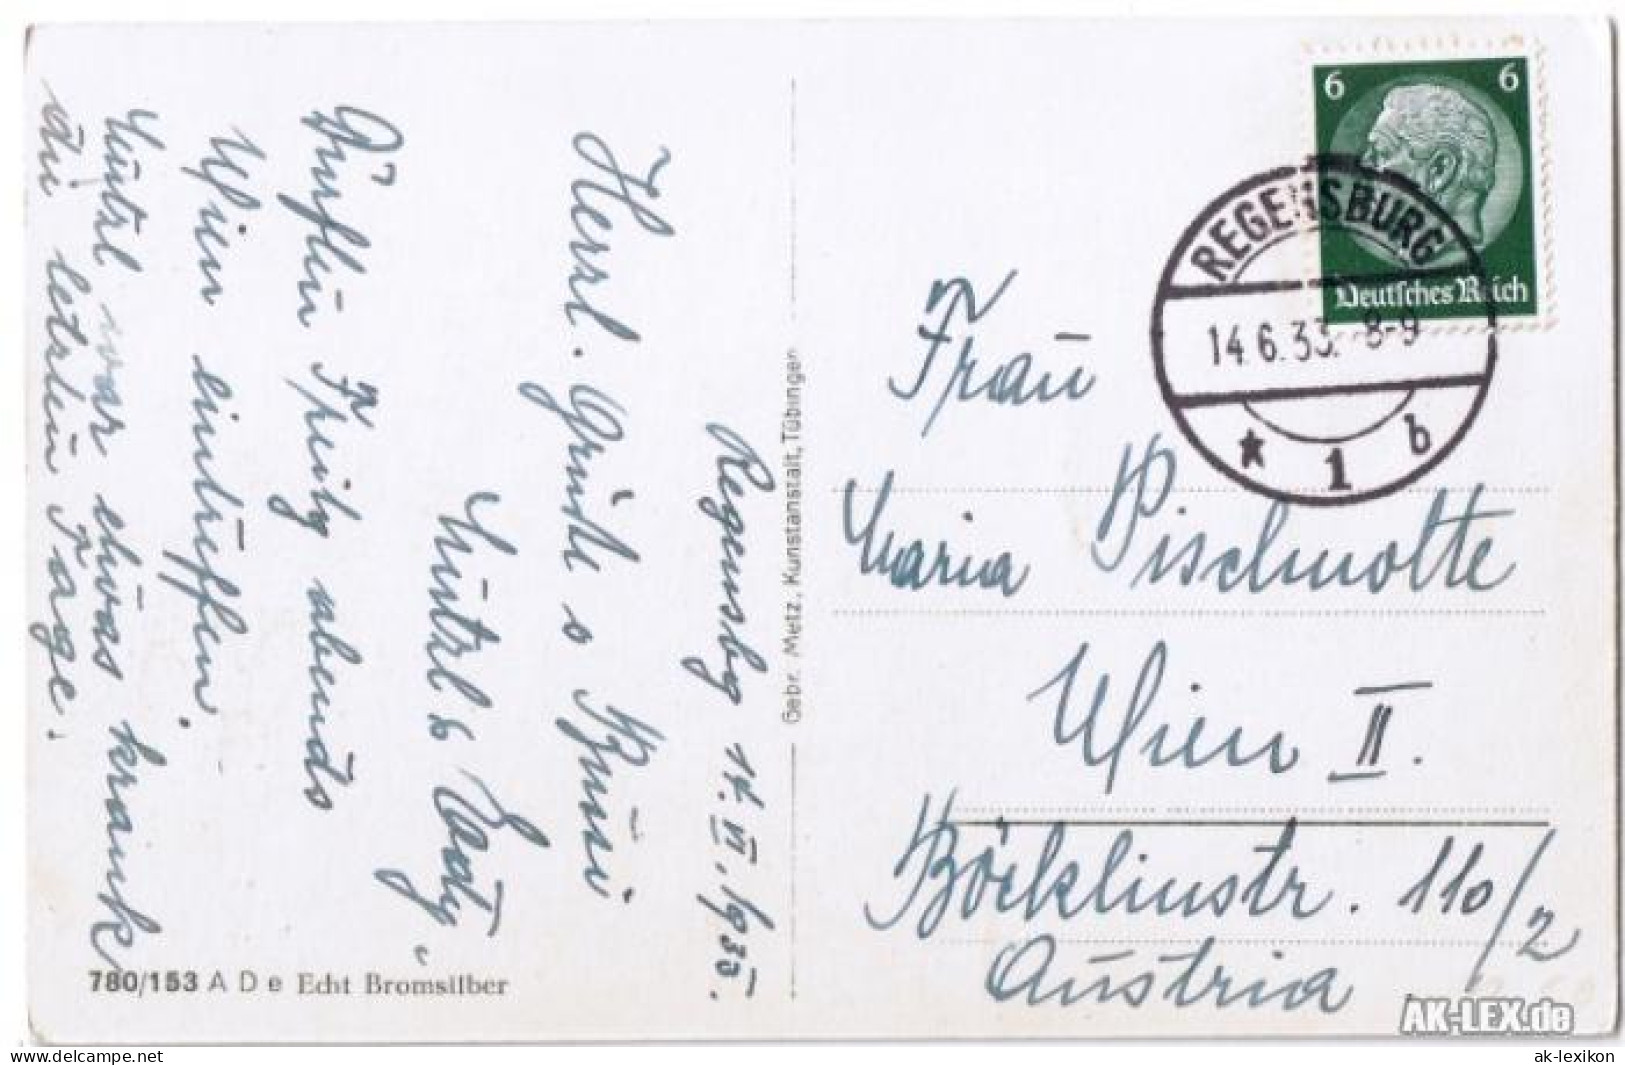 Regensbg 14. VI. 1935.
Herzl. Grüße u. Küssi
6 6
Deutsches Reich
REGENSBURG
14.6.33. 8-9
* 1 b
Frau
Maria Pischnotte
Wien II.
Böcklinstr. 110/2
Austria
Gebr. Metz, Kunstanstalt, Tübingen
Dürften Freitg abends
Wien eintreffen.
war etwas krank
die letzten Tage.
780/153 A D e Echt Bromsilber
AK-LEX.de
ak-lexikon
delcampe.net